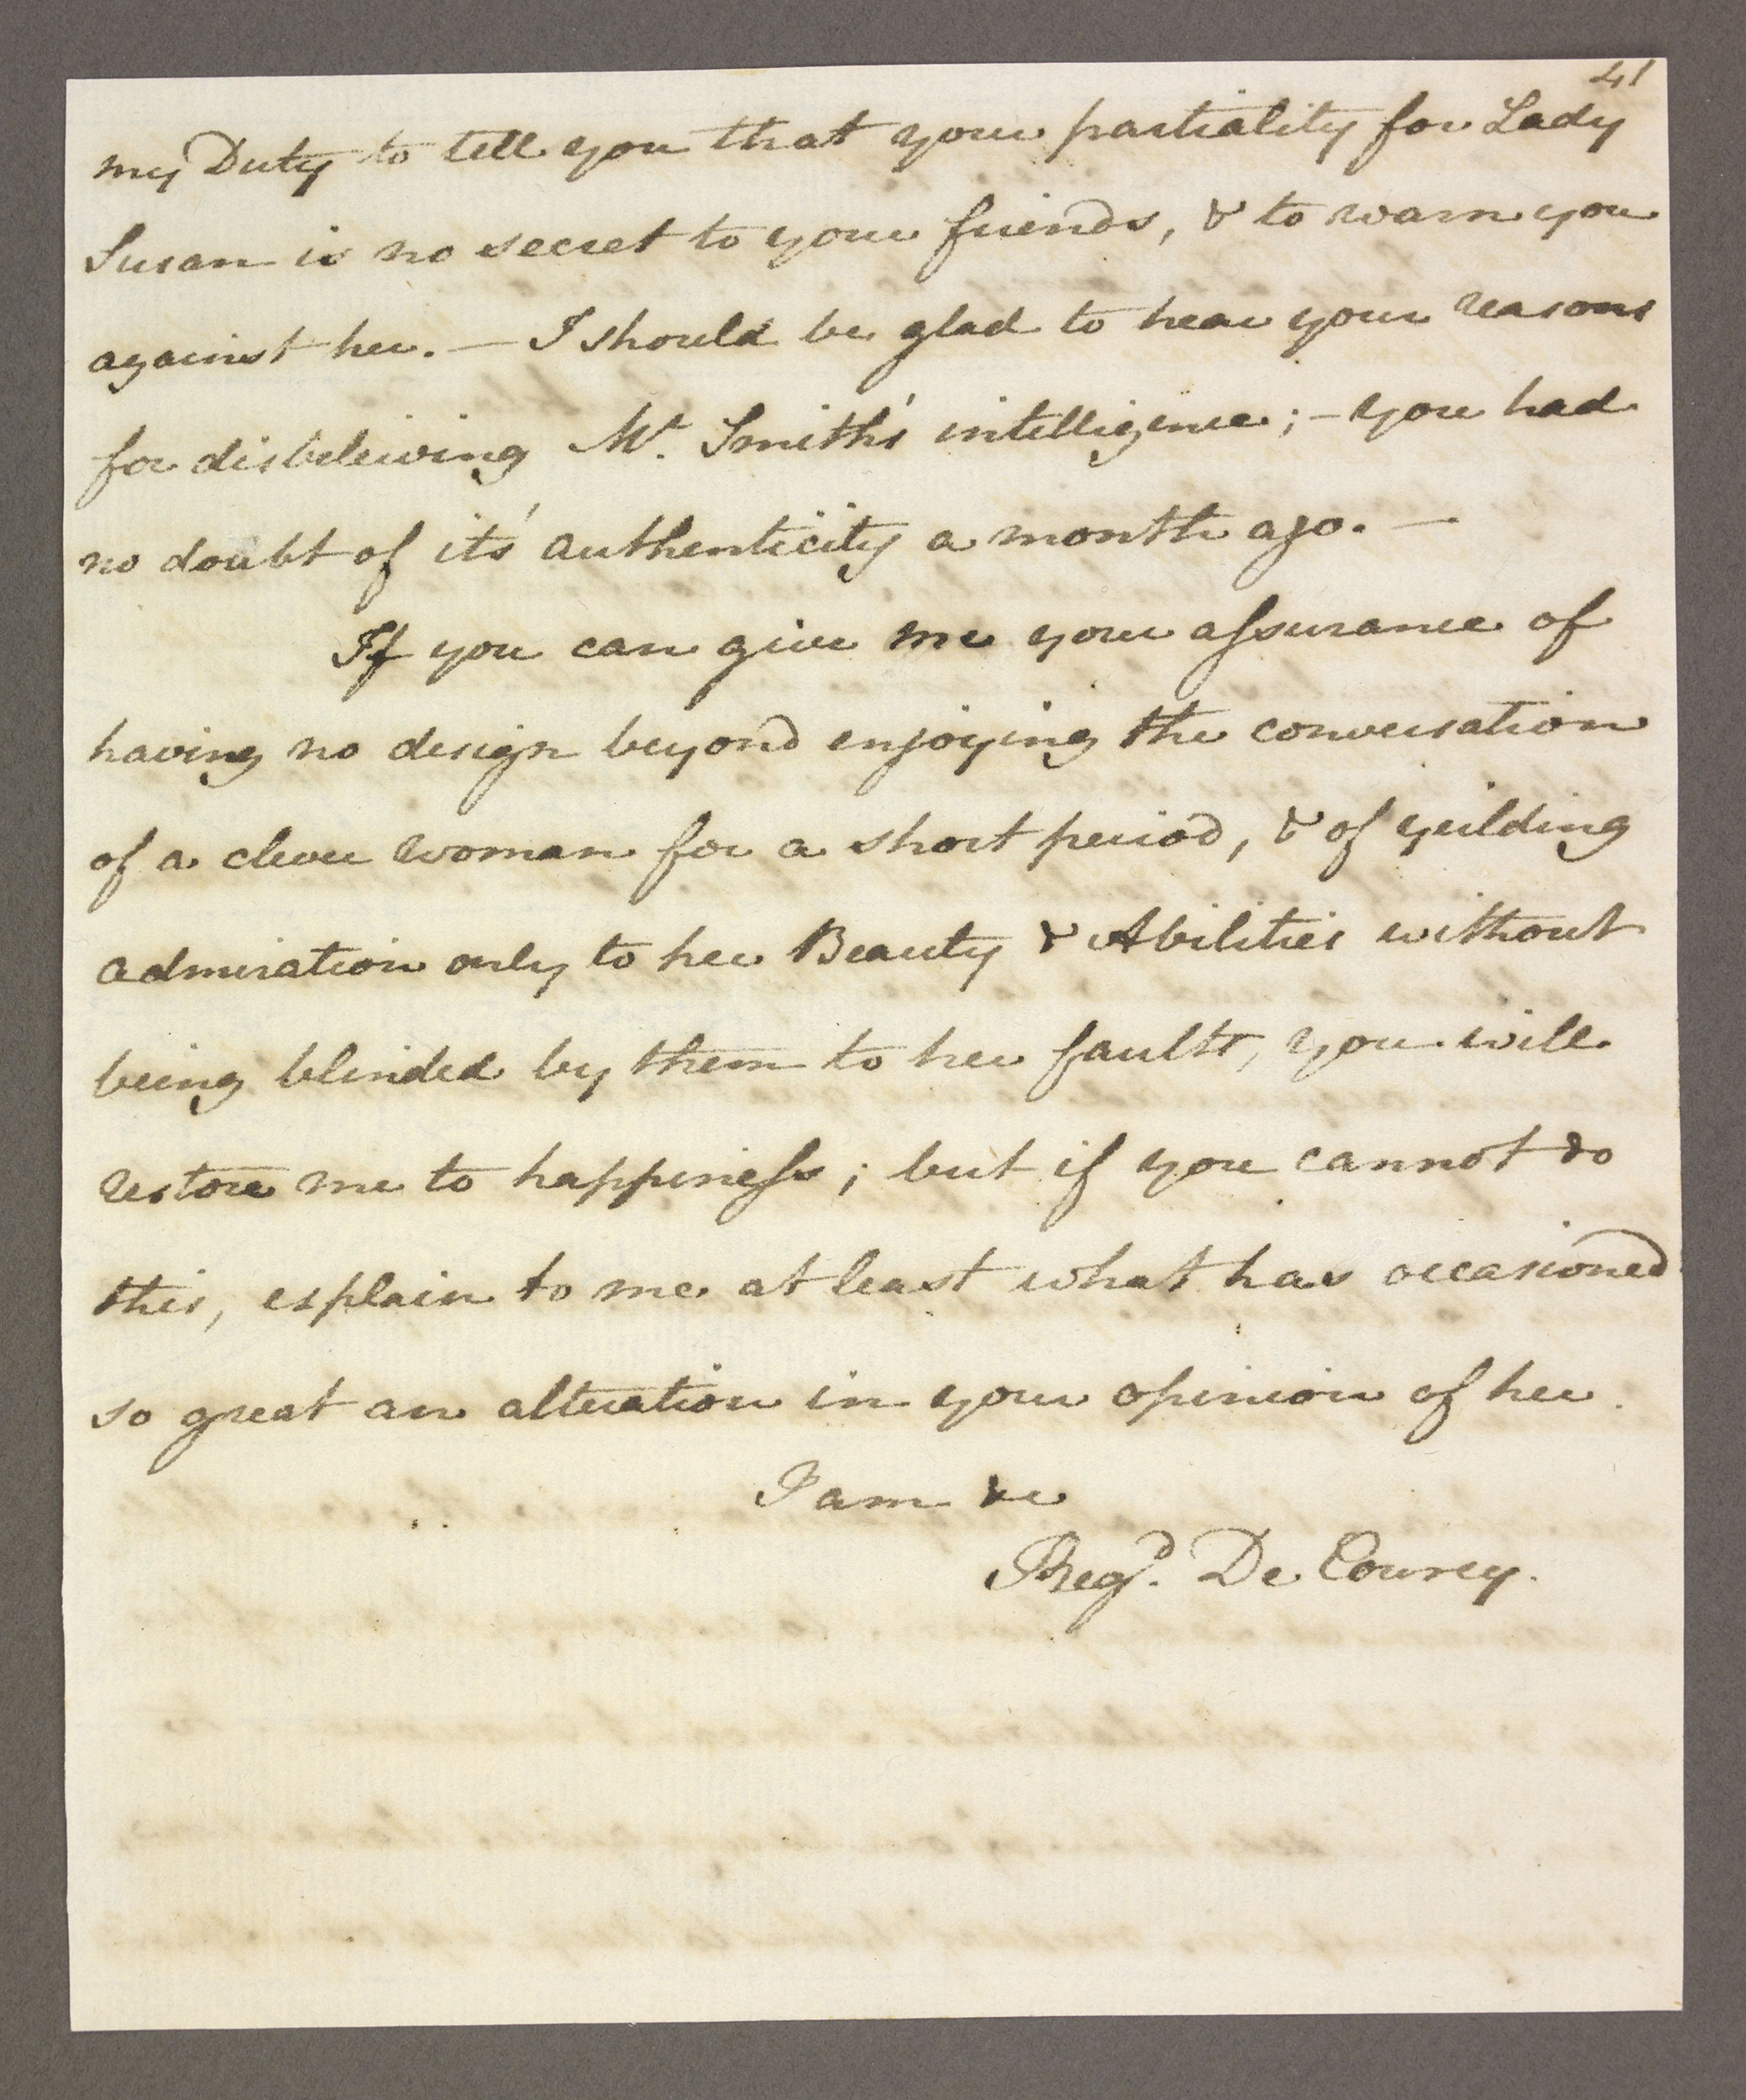 41
my Duty to tell you that your partiality for Lady
Susan is no secret to your friends, & to warn you
against her. — I should be glad to hear your reasons
for disbeleiving Mr. Smith's intelligence; – you had
no doubt of it's authenticity a month ago. —
If you can give me your assurance of
having no design beyond enjoying the conversation
of a clever woman for a short period, & of yeilding
admiration only to her Beauty & Abilities without
being blinded by them to her faults, you will
restore me to happiness; but if you cannot do
this, explain to me at least what has occasioned
so great an alteration in your opinion of her.
I am &c
Regd. De Courcy.